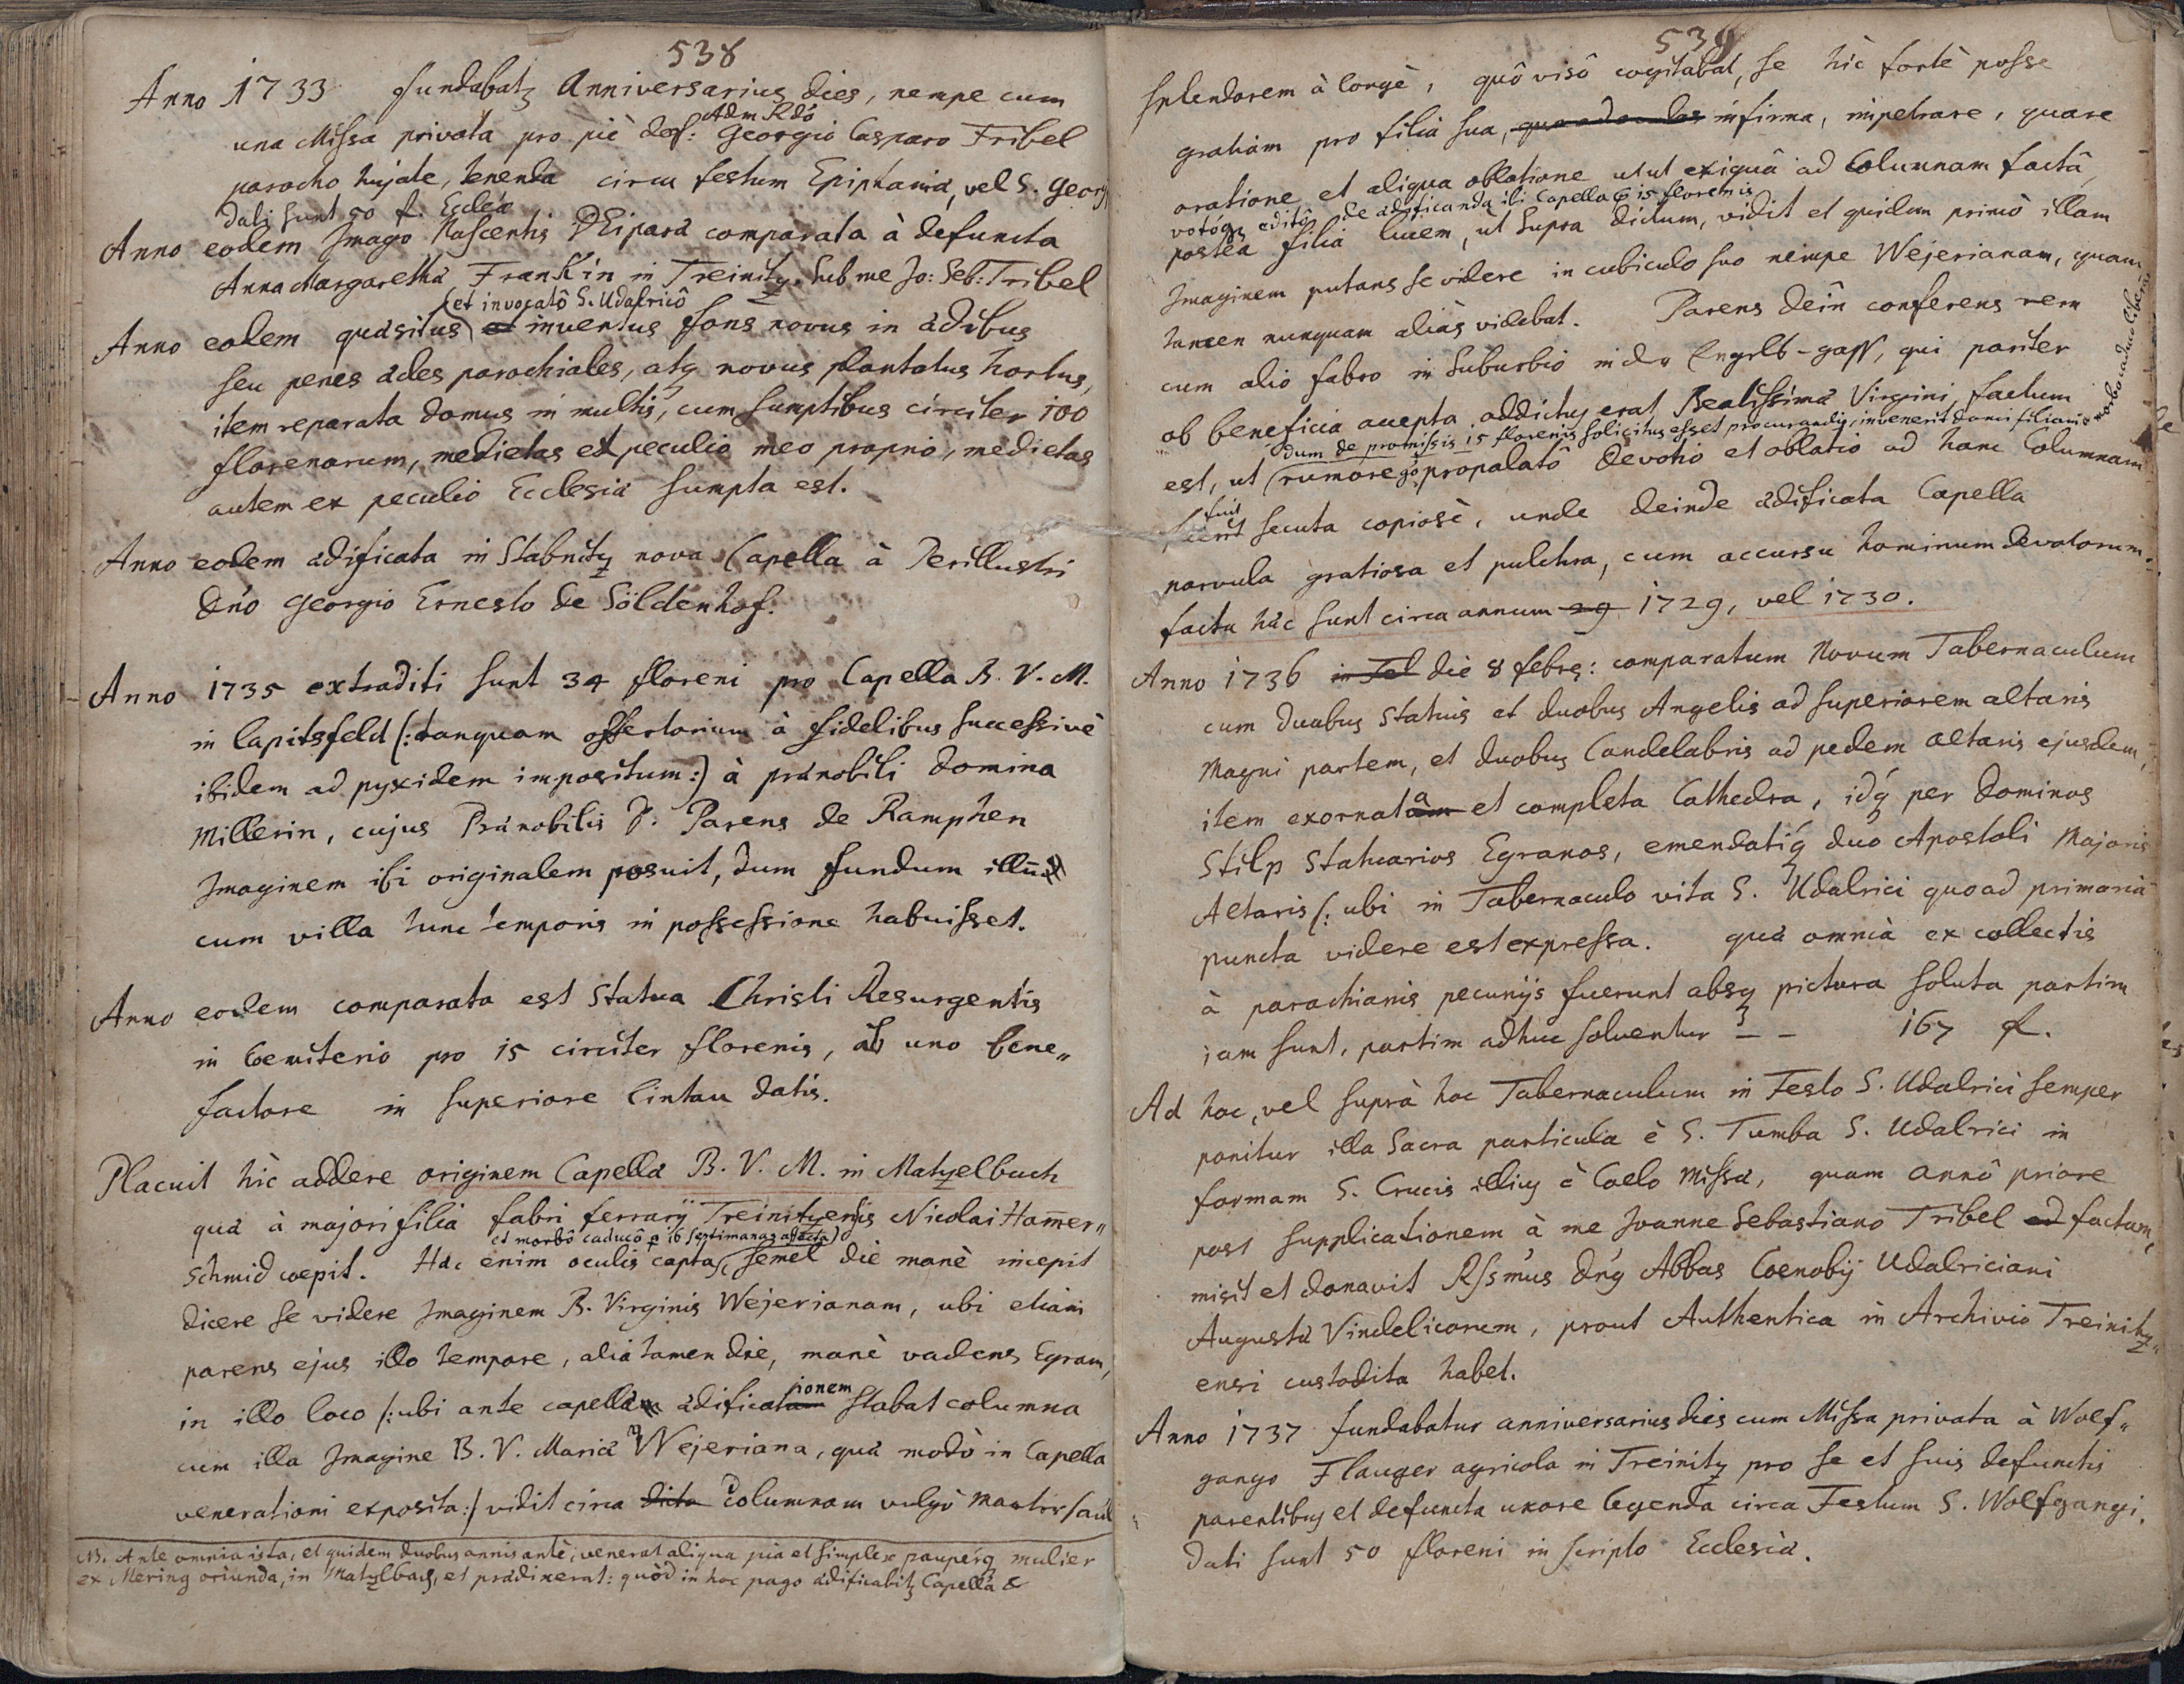 538
Anno 1733 fundabatz Anniversarius dies, nempe cum
Adm Rdo
una Missa privata pro piè def: Georgio Casparo Tribel
parocho hujate, tenenda circa festum Epiphaniæ, vel S. Georg
dati sunt 50 f. Ecclæ
Anno eodem Imago Nascentis DEiparæ comparata à defuncta
Anna Margaretha Frankin in Treinitz. Sub me Jo: Seb: Tribel
(et invocatô S. Udalricô
Anno eodem quæsitus et inventus fons novus in ædibus
seu penes ædes parochiales, atq novus plantatus hortus,
item reparata domus in multis, cum sumptibus circiter 100
florenorum, medietas ex peculio meo proprio, medietas
autem ex peculio Ecclesiæ sumpta est.
Anno eodem ædificata in Stabnitz nova Capella à Perillustri
Dńo Georgio Ernesto de Söldenhof.
Anno 1735 extraditi sunt 34 floreni pro Capella B. V. M.
in Lapitzfeld (: tanquam offertorium à fidelibus successivè
ibidem ad pyxidem impositum :) à prænobili Domina
Millerin, cujus Prænobilis D. Parens de Ramphen
Imaginem ibi originalem posuit, dum fundum illū
cum villa tunc temporis in possessione habuisset.
Anno eodem comparata est Statua Christi Resurgentis
in Coemiterio pro 15 circiter florenis, ab uno bene„
factore in superiore Lintau datis.
Placuit hìc addere originem Capellæ B. V. M. in Matzelbach
quæ à majori filia fabri ferrarij Treinitzensis Nicolai Ham̄er„
et morbô caducô p 16 septimanas affecta)
Schmid coepit. Hæc enim oculis capta, semel die manè incepit
dicere se videre Imaginem B. Virginis Wejerianam, ubi etiam
parens ejus illo tempore, alia tamen die, manè vadens Egram,
ionem
in illo loco (: ubi ante capellæ ædificatam stabat columna
cum illa Imagine B. V. Mariæ Wejeriana, quæ modò in Capella
venerationi exposita :/ vidit circa dicta Columnam vulgò Marter/saul
NB. Ante omnia ista, et quidem duobus annis antè, venerat aliqua pia et simplex pauperq mulier
ex Mering oriunda, in Matzlbach, et prædixerat: quòd in hoc pago ædificabitz Capella &
539
splendorem à longè, quô visô cogitabat, se hìc fortè posse
gratiam pro filia sua, infirma, impetrare, quare
oratione et aliqua oblatione ut ut exiguâ ad Columnam factâ,
votóq edito de ædificanda ibi Capella è 15 florenis
postea filia lucem, ut supra dictum, vidit et quidem primò illam
Imaginem putans se videre in cubiculo suo nempe Wejerianam, quam
tamen nunquam aliàs videbat. Parens dein conferens rem
cum alio fabro in Suburbio in der Engelb-gass, qui pariter
ob beneficia accepta addictus erat Beatissimæ Virgini, factum
dum de promissis 15 florenis solicitus esset procurandis, invenerit domi filiam à
morbo caduco liberā
est, ut (rumore propalatô devotio et oblatio ad hanc Columnam
fuit
secuta copiosè, unde deinde ædificata Capella
parvula gratiosa et pulchra, cum accursu hominum devotorum.
facta hæc sunt circa annum 29 1729, vel 1730.
Anno 1736 in Fel die 8 febrs: comparatum Novum Tabernaculum
cum duabus statuis et duobus Angelis ad superiorem altaris
Magni partem, et duobus Candelabris ad pedem altaris ejusdem,
a
item exornatam et completa Cathedra, idq per Dominos
Stilp Statuarios Egranos, emendatiq duo Apostoli Majoris
Altaris (: ubi in Tabernaculo vita S. Udalrici quoad primaria
puncta videre est expressa. quæ omnia ex collectis
à parochianis pecunijs fuerunt absq pictura soluta partim
jam sunt, partim adhuc solventur – – 167 f.
Ad hoc, vel suprà hoc Tabernaculum in Festo S. Udalrici semper
ponitur illa Sacra particula è S. Tumba S. Udalrici in
formam S. Crucis illius è Coelo Missæ, quam annô priore
post supplicationem à me Joanne Sebastiano Tribel ad factam,
misit et donavit Rssmus Dńs Abbas Coenobij Udalriciani
Augustæ Vindelicorum, prout Authentica in Archivio Treinitz„
ensi custodita habet.
Anno 1737 fundabatur anniversarius dies cum Missa privata à Wolf„
gango Flauger agricola in Treinitz pro se et suis defunctis
parentibus et defuncta uxore legenda circa Festum S. Wolfgangi.
Dati sunt 50 floreni in scripto Ecclesiæ.